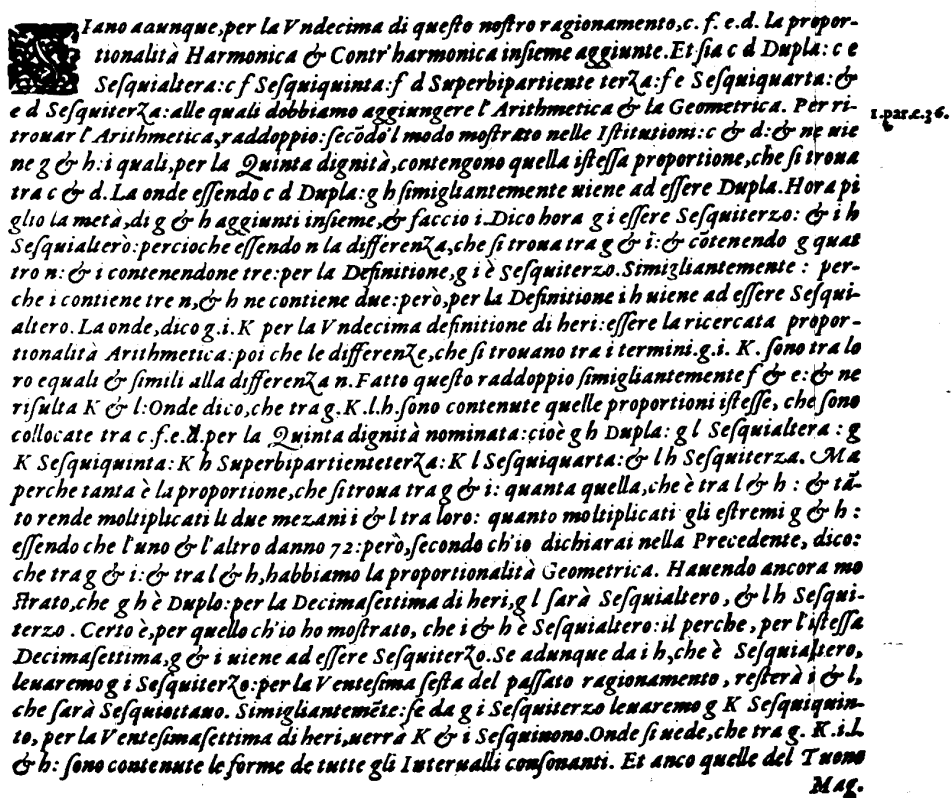 SIano adunque, per la Vndecima di queſto noſtro ragionamento, c. f. e. d. la propor-
tionalità Harmonica & Contr'harmonica inſieme aggiunte. Et ſia c d Dupla: c e
Seſquialtera: c f Seſquiquinta: f d Superbipartiente terza: f e Seſquiquarta: &
e d Seſquiterza: alle quali dobbiamo aggiungere l'Arithmetica & la Geometrica. Per ri-
1. par. c. 36.
trouar l'Arithmetica, raddoppio: ſecōdo'l modo moſtrato nelle Iſtitutioni: c & d: & ne uie
ne g & h: i quali, per la Quinta dignità, contengono quella iſteſſa proportione, che ſi troua
tra c & d. La onde eſſendo c d Dupla: g h ſimigliantemente uiene ad eſſere Dupla. Hora pi
glio la metà, di g & h aggiunti inſieme, & faccio i. Dico hora g i eſſere Seſquiterzo: & i h
Seſquialtero: percioche eſſendo n la differenza, che ſi troua tra g & i: & cōtenendo g quat
tro n: & i contenendone tre: per la Definitione, g i è Seſquiterzo. Simigliantemente: per-
che i contiene tre n, & h ne contiene due: però, per la Definitione i h uiene ad eſſere Seſqui-
altero. La onde, dico g. i. K per la Vndecima definitione di heri: eſſere la ricercata propor-
tionalità Arithmetica: poi che le differenze, che ſi trouano tra i termini. g. i. K. ſono tra lo
ro equali & ſimili alla differenza n. Fatto queſto raddoppio ſimigliantemente f & e: & ne
riſulta K & l: Onde dico, che tra g. K. l. h. ſono contenute quelle proportioni iſteſſe, che ſono
collocate tra c. f. e. d. per la Quinta dignità nominata: cioè g h Dupla: g l Seſquialtera: g
K Seſquiquinta: K h Superbipartienteterza: K l Seſquiquarta: & l h Seſquiterza. Ma
perche tanta è la proportione, che ſi troua tra g & i: quanta quella, che è tra l & h: & tā-
to rende moltiplicati li due mezani i & l tra loro: quanto moltiplicati gli eſtremi g & h:
eſſendo che l'uno & l'altro danno 72: però, ſecondo ch'io dichiarai nella Precedente, dico:
che tra g & i: & tra l & h, habbiamo la proportionalità Geometrica. Hauendo ancora mo
ſtrato, che g h è Duplo: per la Decimaſettima di heri, g l ſarà Seſquialtero, & l h Seſqui-
terzo. Certo è, per quello ch'io ho moſtrato, che i & h è Seſquialtero: il perche, per l'iſteſſa
Decimaſettima, g & i uiene ad eſſere Seſquiterzo. Se adunque da i h, che è Seſquialtero,
leuaremo g i Seſquiterzo: per la Venteſima ſeſta del paſſato ragionamento, reſterà i & l,
che ſarà Seſquiottauo. Simigliantemēte: ſe da g i Seſquiterzo leuaremo g K Seſquiquin-
to, per la Venteſimaſettima di heri, uerrà K & i Seſquinono. Onde ſi uede, che tra g. K. i. l.
& h: ſono contenute le forme de tutte gli Interualli conſonanti. Et anco quelle del Tuono
Mag.